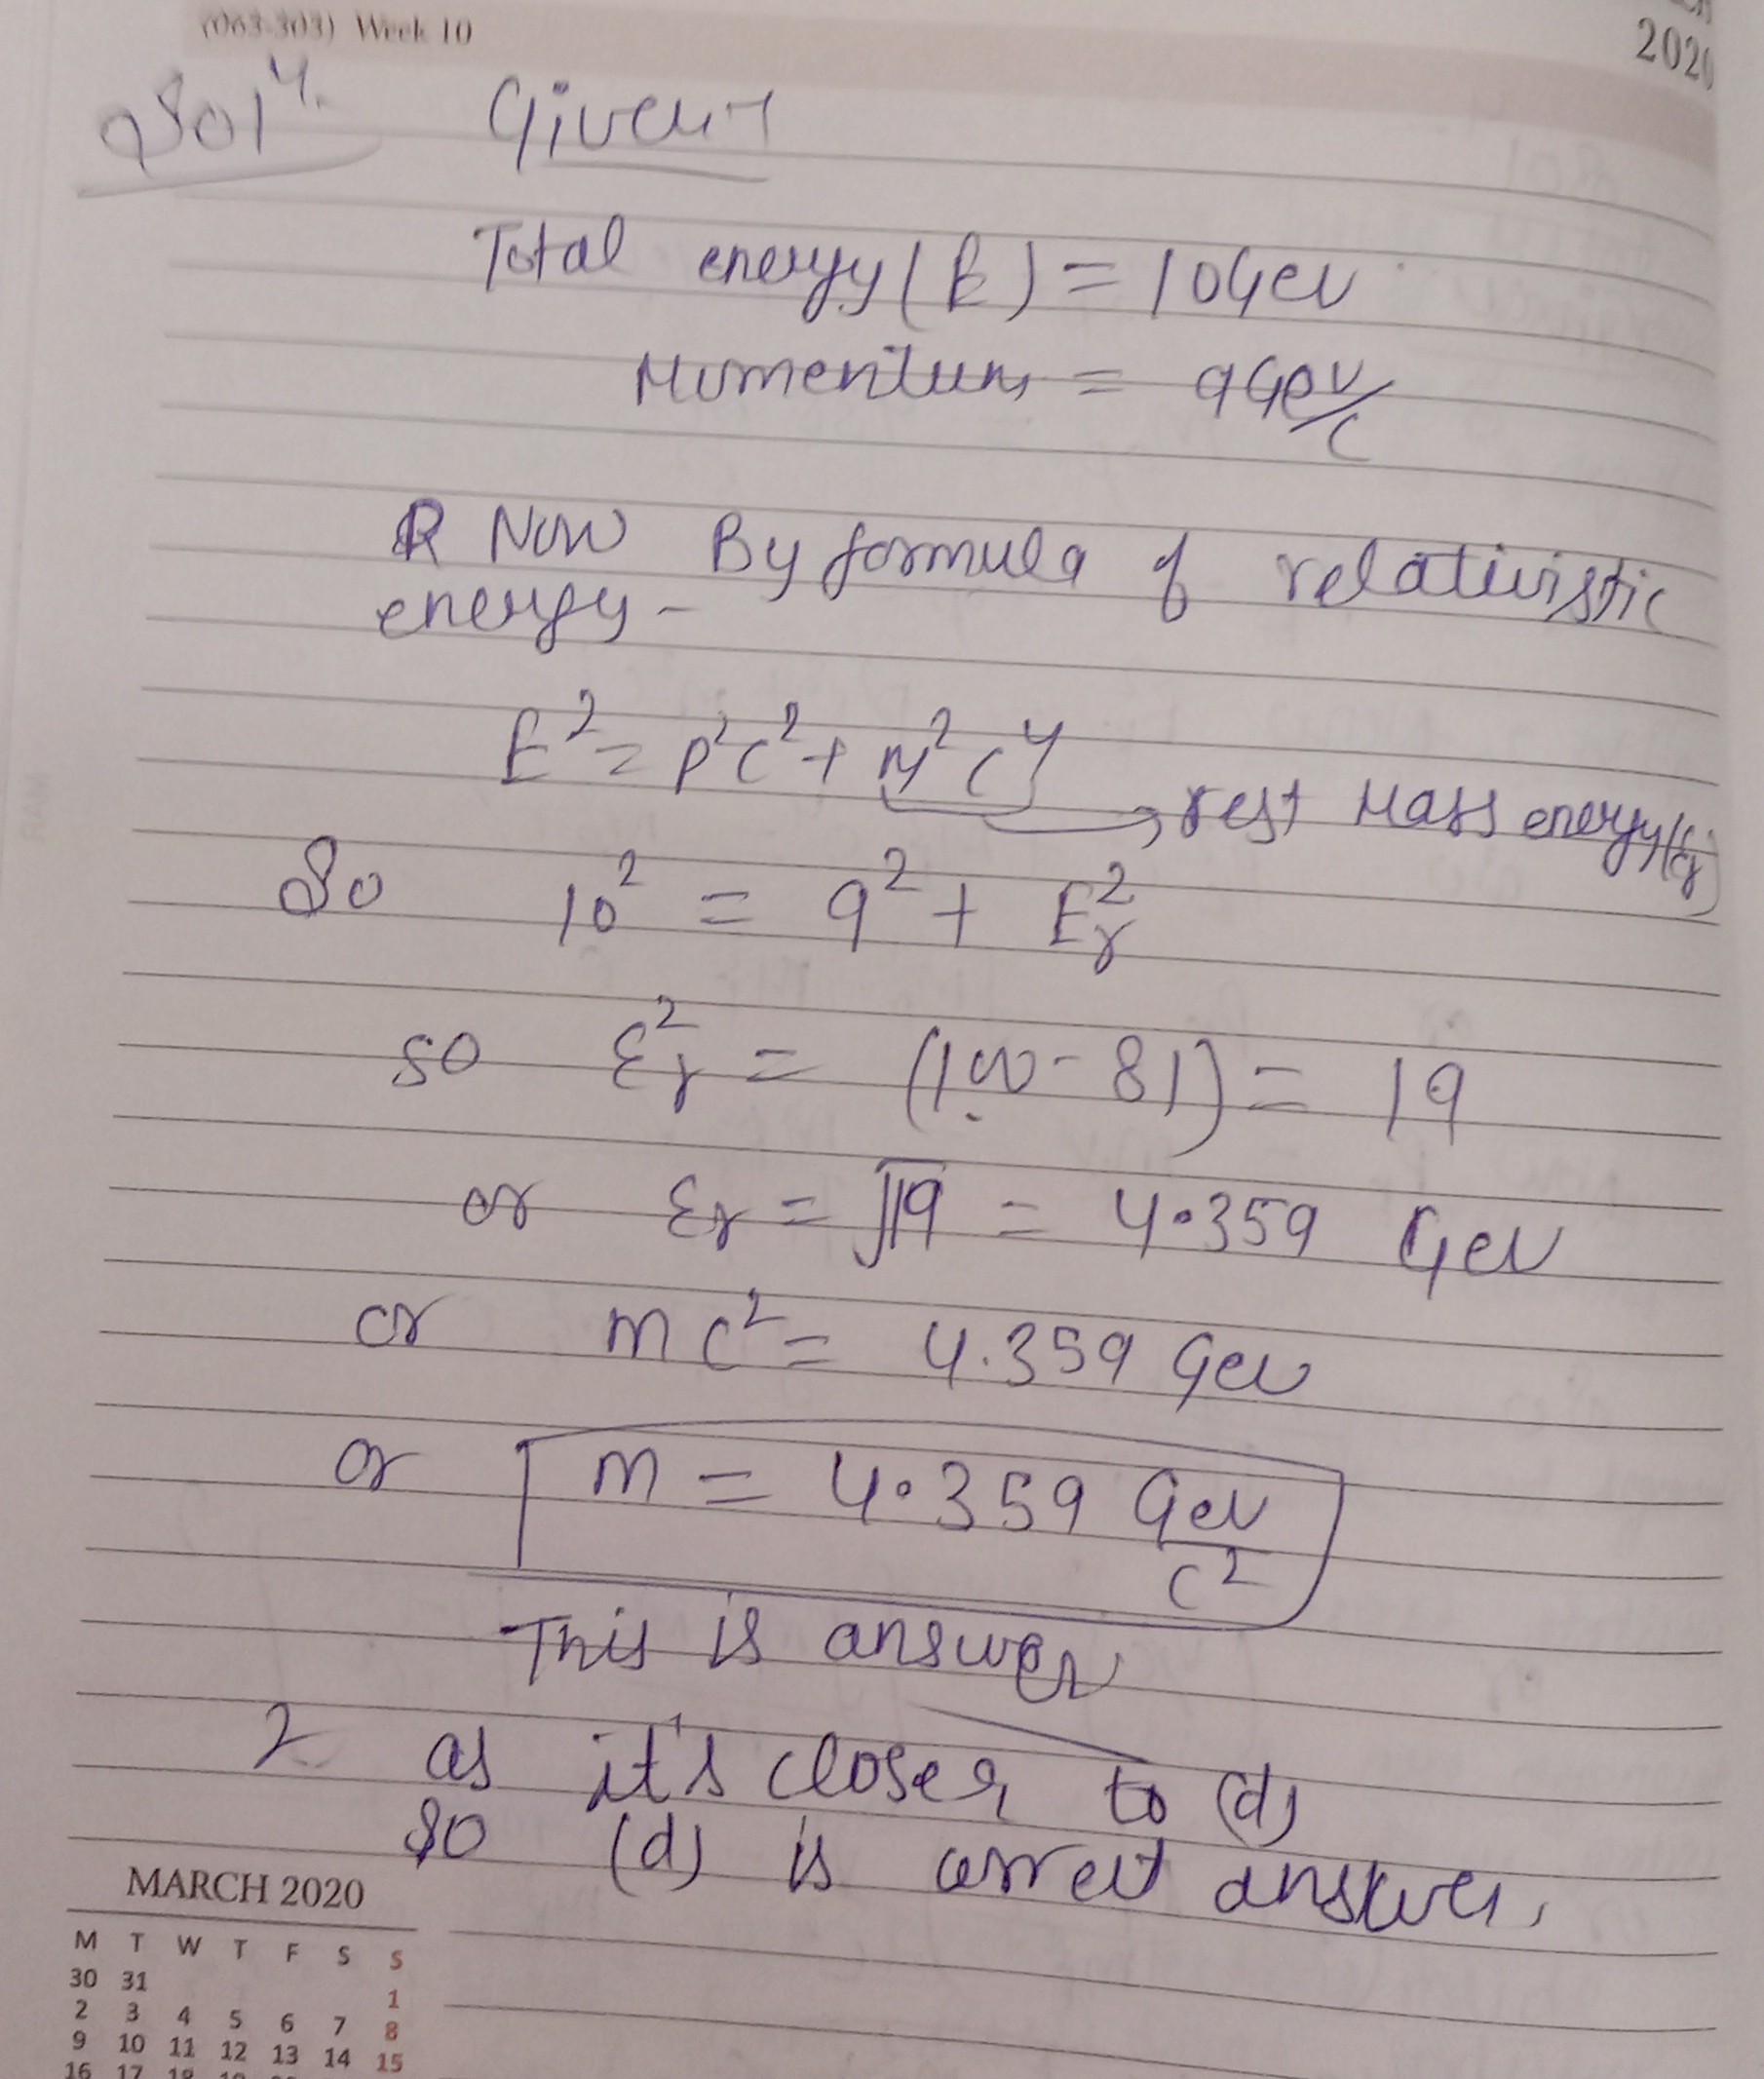 (063-303) Week 10
2020
Sol⁴.
Given-
Total energy (E) = 10GeV
Momentum = 9GeV/c
Now By formula of relativistic
energy-
E² = P²C² + M²C⁴
rest Mass energy (Er)
So 10² = 9² + Er²
so Er² = (100-81) = 19
or Er = √19 = 4.359 GeV
or mc² = 4.359 GeV
or m = 4.359 GeV/c²
This is answer
2 as it's closer to (d)
so (d) is correct answer.
MARCH 2020
M T W T F S S
30 31 1
2 3 4 5 6 7 8
9 10 11 12 13 14 15
16 17 18
MAR